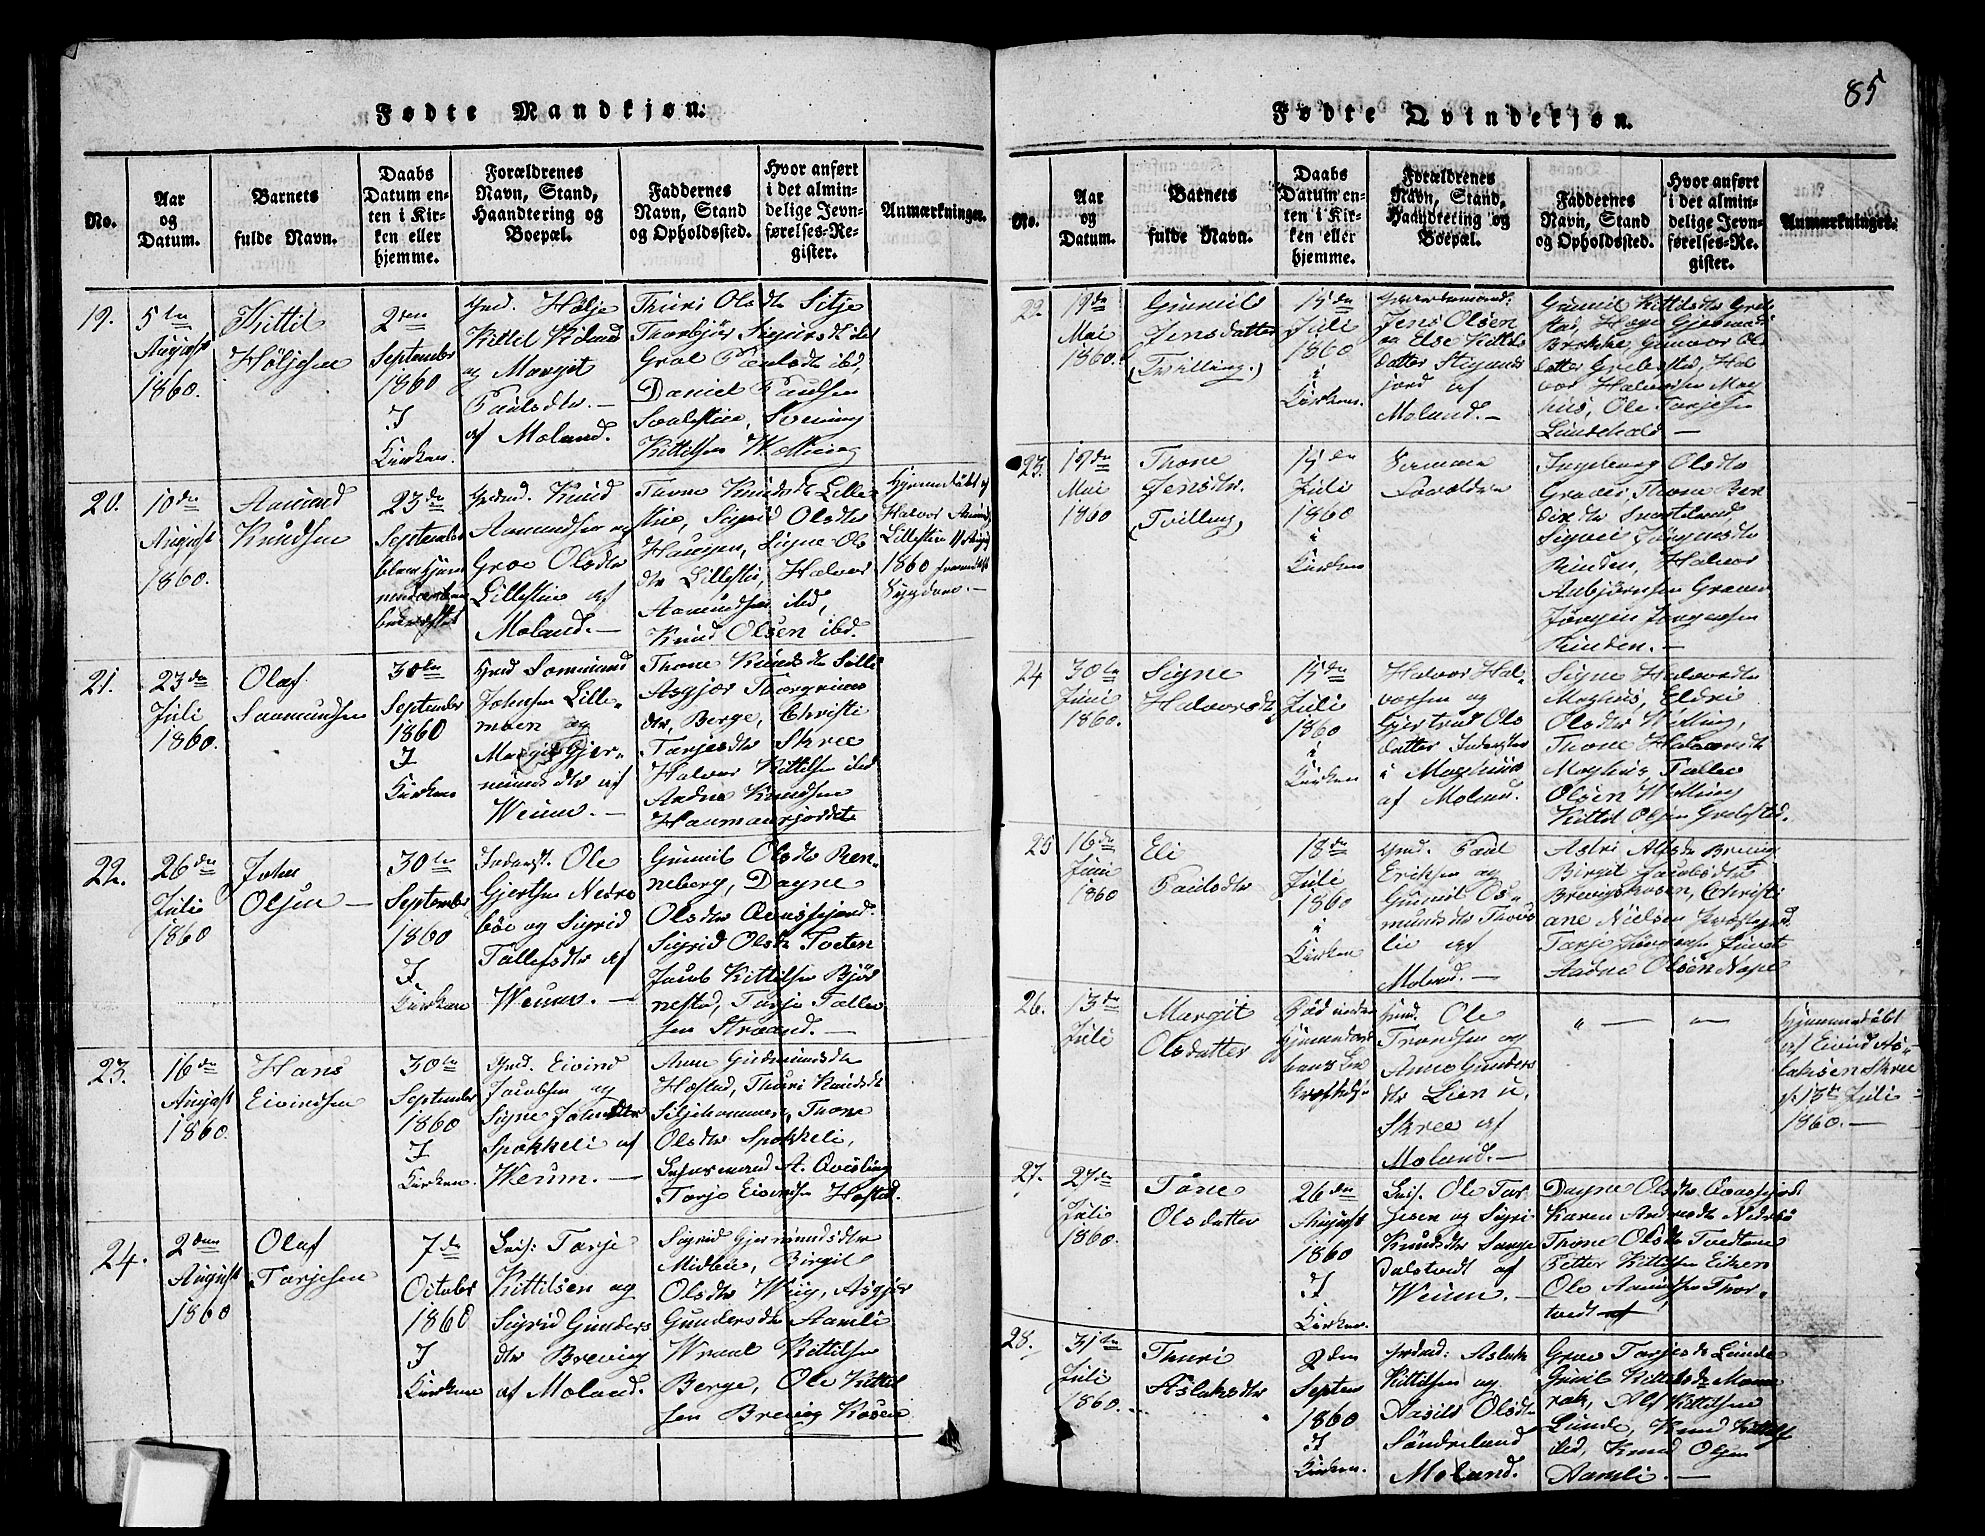 Fødte Mandkjøn.
No.
Aar
og
Datum.
Barnets
fulde Navn.
Daabs
Datum en-
ten i Kir-
ken eller
hjemme.
Forældrenes
Navn, Stand,
Haandtering og
Boepæl.
Faddernes
Navn, Stand
og Opholdssted.
Hvor anført
i det almin-
delige Jevn-
førelses-Re-
gister.
Anmærkninger.
19.
5te
August
1860.
Kittil
Høljesen
2den
September
1860
I
Kirken.
Gmd. Hølje
Kittils
og Margit
Paulsdtr. —
af Moland.
Thuri Olsdtr Sitje
Thorbjør
Groe Paulsdtr ibd,
Daniel Paulsen
Svenung
Kittilsen
20.
10de
August
1860.
Aamund
Knudsen
23de
September
Gmd. Knud
Aamundsen og
Groe Olsdtr
Lillestie af
Moland. —
Thone Knudsdtr Lille-
stie, Sigrid Olsdtr
Haugen, Signe Ols
dtr Lillestie, Halvor
Aamundsen ibd,
Knud Olsen ibd.
Hjemmedøbt af
Halvor Aamunds
Lillestie 11 August
1860 formedelst
Sygdom. —
21.
23de
Juli
1860.
Olaf
Saamundsen
30te
September
1860
I
Kirken
Gmd Saamund
Johnsen Lille-
moen og
Margit Gjer-
mundsdtr af
Weum. —
Thone Knudsdtr
Asgjær Thorgrims
dtr, Berge, Christi
Tarjesdtr Skree
Halvor Kittilsen ibd
Aadne Knudsen
22.
26de
Juli
1860
John
Olsen —
30te
September
1860
I
Kirken
Inderst. Ole
Gjertsen Nedre
bøe og Sigrid
Tallefsdtr af
Weum. —
Gunnil Olsdtr Ren-
neberg, Dagne
Olsdtr
Sigrid Olsdtr Tveten
Jacob Kittilsen Bjør
nestad, Tarje Tallev
sen Straand. —
23.
16de
August
1860.
Hans
Eivindsen
30te
September
1860
I
Kirken.
Gmd. Eivind
Jacobsen og
Signe
Spokkeli af
Weum. —
Anne Gudmundsdtr
Høstad, Thuri Knudsdtr
Thone
Olsdtr Spokkeli,
Lensmand A. Qvisling
Tarje Eivindsen Høstad.
24.
2den
August
1860
Olaf
Tarjesen
7de
October
1860
I
Kirken
Leis: Tarje
Kittilsen og
Sigrid Gunders
dtr Breivig
af Moland.
Sigrid Gjermundsdtr
Midbøe, Birgit
Olsdtr Wiig, Asgjer
Gundersdtr Aamli
Wraal Kittilsen
Berge, Ole Kittil
sen Breivig Kosene
85
Fødte Qvindekjøn.
No.
Aar
og
Datum.
Barnets
fulde Navn.
Daabs
Datum en-
ten i Kir-
ken eller
hjemme.
Forældrenes
Navn, Stand,
Haandtering og
Boepæl.
Faddernes
Navn, Stand
og Opholdssted.
Hvor anført
i det almin-
delige Jevn-
førelses-Re-
gister.
Anmærkninger.
22.
19de
Mai
1860.
Gunnil
Jensdatter
(Tvilling.)
15de
Juli
1860
i
Kirken.
Gaardmand.
Jens Olsen
og Else Kittils
datter
af
Moland. —
Gunnil Kittilsdtr
Brokke Gunvor Ol
datter Hal
vor Halvorsen Mog
hus, Ole Tarjesen
—
23.
19de
Mai
1860
Thone
Jensdtr.
(Tvilling)
15de
Juli
1860
i
Kirken
Samme
Forældre
Ingeborg Olsdtr
Thone Ben
dixdtr
Jørgensdtr
Rinden, Halvor
Anbjørnsen
Jørgen Jørgensen
Rinden. —
24
30te
Juni
1860.
Signe
Halvorsdtr
15de
Juli
1860
i
Kirken
Halvor Hal-
vorsen og
Gjertrud Ols
datter Inderster
i Moghuus
af Moland.
Signe Halvorsdtr
Moghus, Eldri
Olsdtr
Thone Halvorsdtr
Moghus, Tallev
Olsen
Kittil Olsen
25
16de
Juni
1860
Eli
Paulsdtr
18de
Juli
1860
i
Kirken
Gmd. Paul
Eriksen og
Gunnil Os-
mundsdtr
lie af
Moland. —
Astri Alfsdtr Breivig
Birgit Jacobsdtr
Christi
ane Nielsen
Tarje Jørgensen
Aadne Olsen
26.
13de
Juli
Margit
Olsdatter
Gmd. Ole
Trondsen og
Anne Gunders
dtr Lien u.
Skree af
Moland. —
" — " —
Hjemmedøbt
af Eivind As-
laksen Skree
d. 13de Juli
1860. —
27.
27de
Juli
1860.
Tone
Olsdatter
26de
August
1860
I
Kirken.
Leis. Ole Tar
jesen og Sigri
Knudsdtr
af
Weum. —
Dagne Olsdtr
Karen Andersdtr Nedrebø
Thone Olsdtr Tvedtene
Petter Kittilsen Eiken
Ole Aamundsen Thor-
tvedt af
28.
31de
Juli
1860.
Thuri
Aslaksdtr
2den
Septem
1860
I
Kirken.
Gmd: Aslak
Kittilsen og
Aasild Olsdtr
Søndrelund
Moland.
Groe Tarjesdtr Lunde
Gunil Kittilsdtr
Alf Kittilsen
Lunde, Knud Kittilsen
ibd, Knud Olsen
Aamli. —